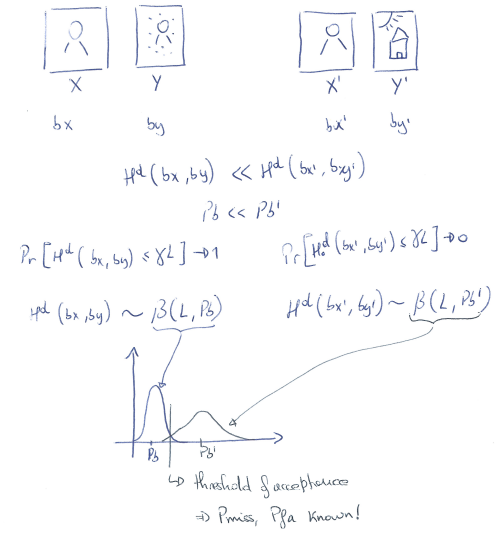 X Y X' Y'
bx by bx' by'
H^d(bx,by) << H^d(bx',bxy')
Pb << Pb'
Pr[H^d(bx,by) ≤ γL] → 1 Pr[H^d(bx',by') ≤ γL] → 0
H^d(bx,by) ~ β(L,Pb) H^d(bx',by') ~ β(L,Pb')
Pb Pb'
↳ threshold of acceptance
⇒ Pmiss, Pfa known!